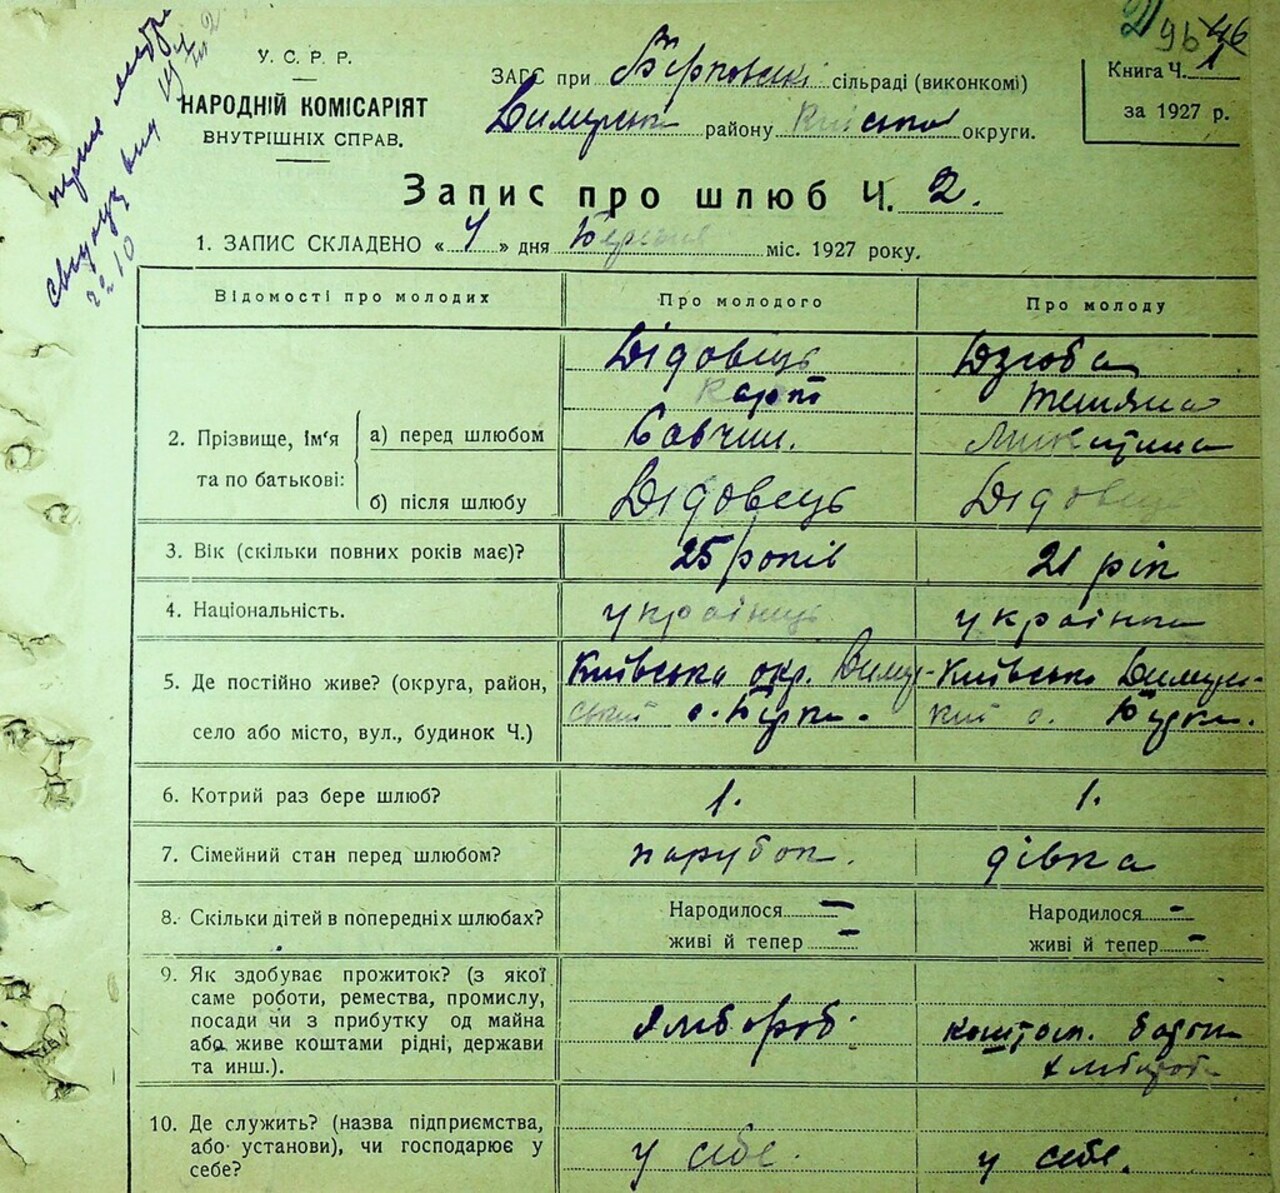 2 96 46
У. С. Р. Р.
НАРОДНІЙ КОМІСАРІЯТ
ВНУТРІШНІХ СПРАВ.
ЗАГС при Бірковскі сільраді (виконкомі)
району Київської округи.
Книга Ч. 1
за 1927 р.
Запис про шлюб Ч. 2.
1. ЗАПИС СКЛАДЕНО « 4 » дня Березня міс. 1927 року.
Відомості про молодих Про молодого Про молоду
2. Прізвище, Ім'я та по батькові:
а) перед шлюбом
Дідовець Дзюба
Карп Тетяна
Савчин. Микитина
б) після шлюбу Дідовець Дідовець
3. Вік (скільки повних років має)? 25 років 21 рік
4. Національність. українець українка
5. Де постійно живе? (округа, район,
село або місто, вул., будинок Ч.)
Київська окр. Димер- Київська Димерсь-
ський с. Бірки. кий с. Бірки.
6. Котрий раз бере шлюб? 1. 1.
7. Сімейний стан перед шлюбом? парубок. дівка
8. Скільки дітей в попередніх шлюбах? Народилося — Народилося -
живі й тепер - живі й тепер -
9. Як здобуває прожиток? (з якої
саме роботи, ремества, промислу,
посади чи з прибутку од майна
або живе коштами рідні, держави
та инш.).
хлібороб. коштом батька
хлібороб
10. Де служить? (назва підприємства,
або установи), чи господарює у
себе?
у себе. у себе.